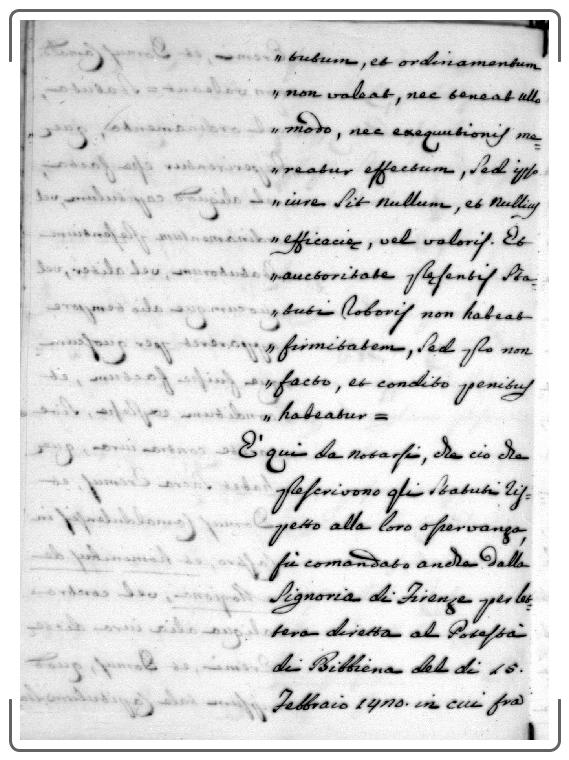 „ tutum, et ordinamentum
„ non valeat, nec teneat ullo
„ modo, nec exequutionis me=
„ reatur effectum, sed ipso
„ iure sit nullum, et nullius
„ efficacię, vel valoris. Et
„ auctoritate pręsentis Sta=
„ tuti roboris non habeat
„ firmitatem, sed pro non
„ facto, et condito penitus
„ habeatur =
E' qui da notarsi, che cio che
prescrivono gli Statuti ris=
petto alla loro osservanza,
fù comandato anche dalla
Signoria di Firenze per let=
tera diretta al Potestà
di Bibbiena del dì 15.
Febbraio 1470. in cui frà